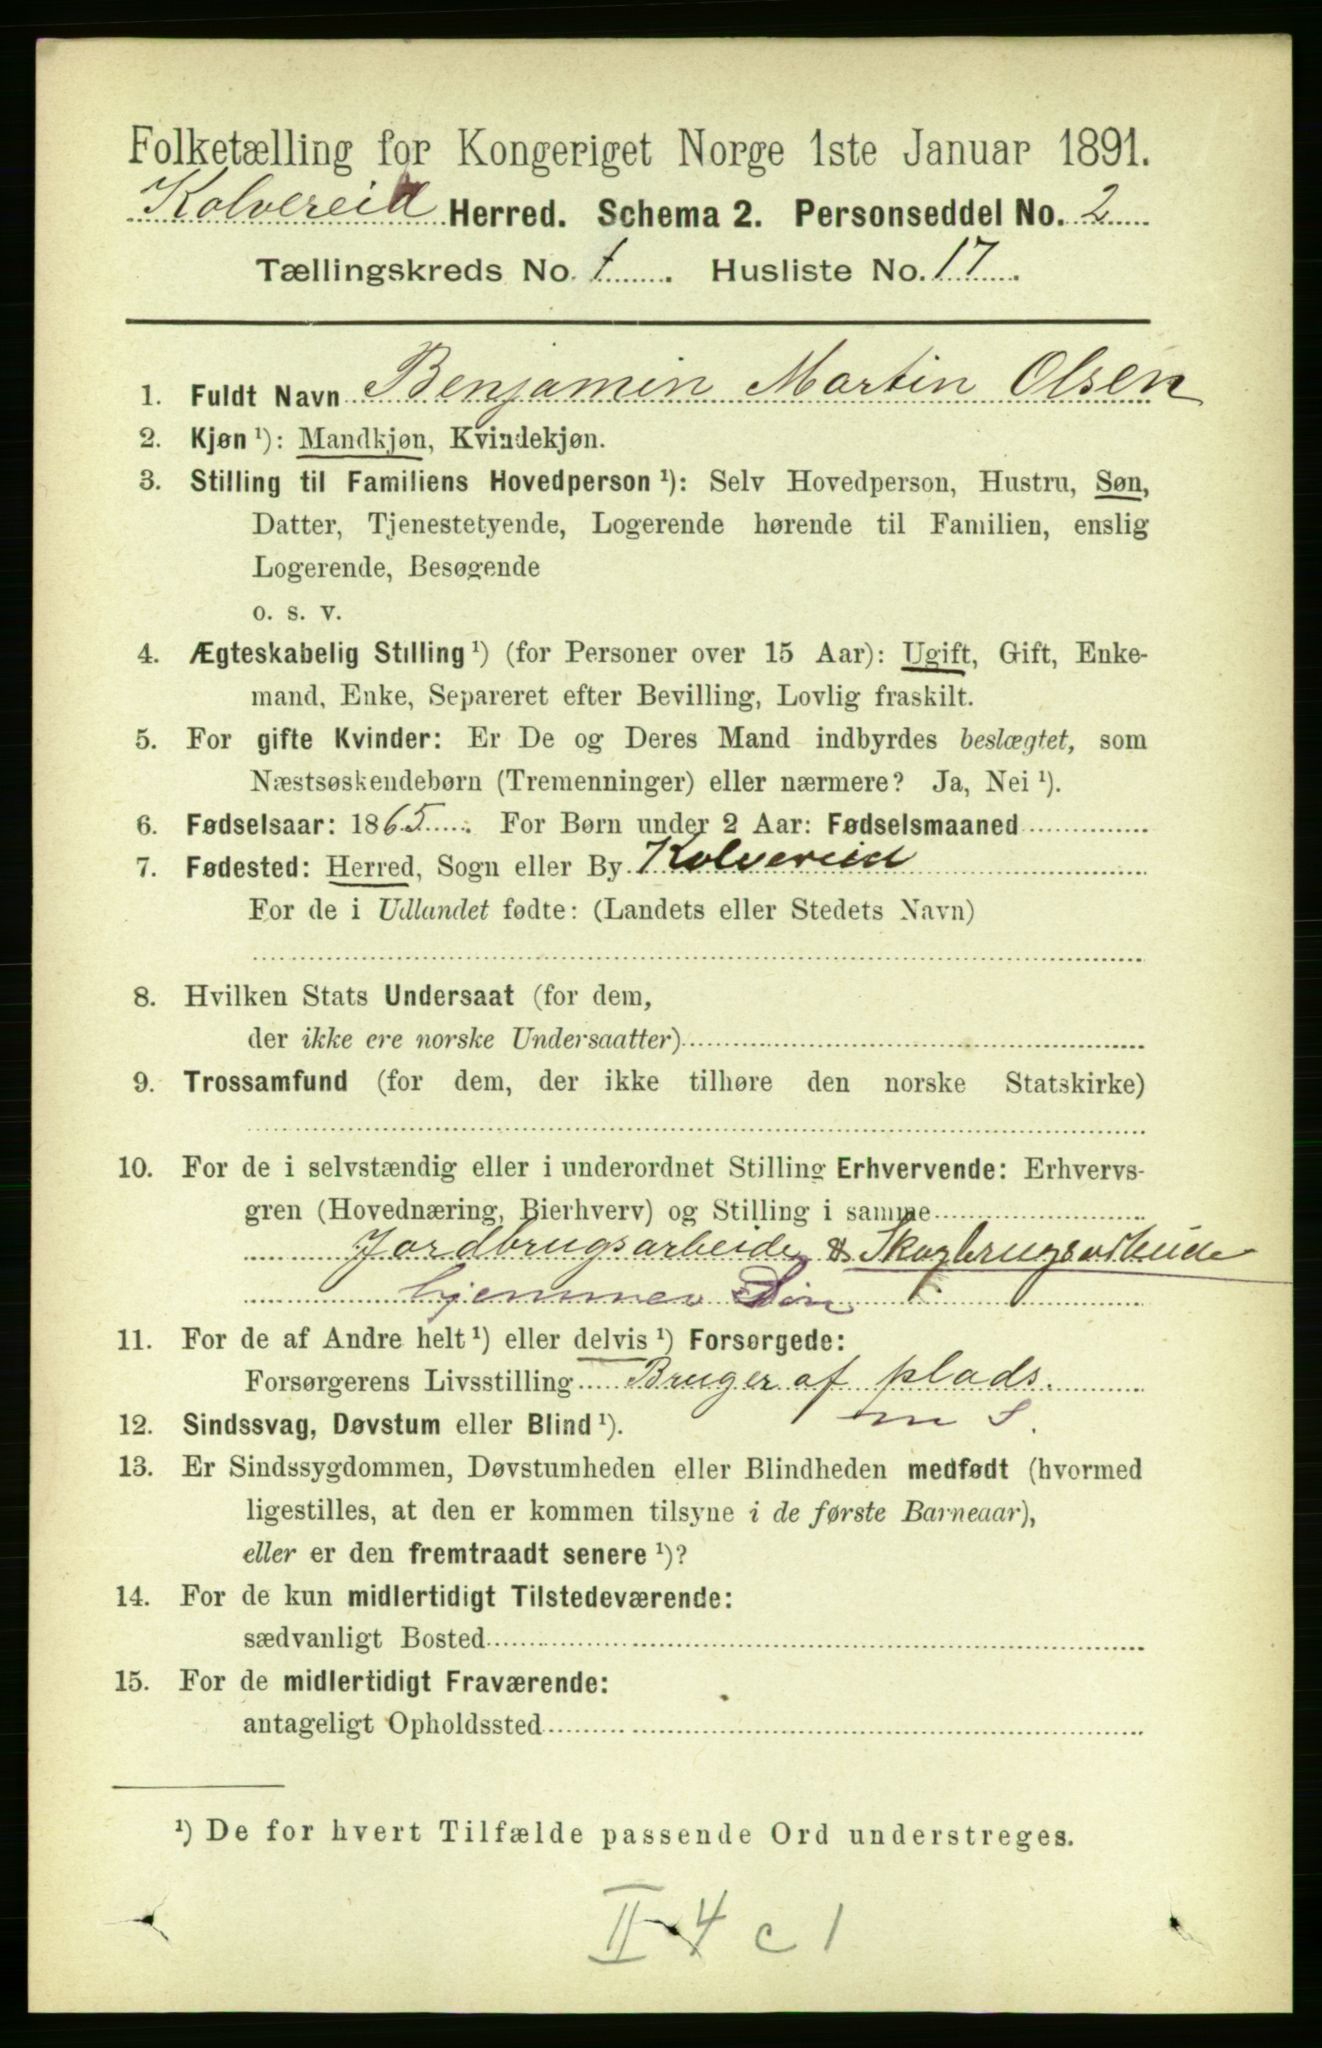 Folketælling for Kongeriget Norge 1ste Januar 1891.
Kolvereid Herred. Schema 2. Personseddel No. 2
Tællingskreds No. 1. Husliste No. 17.
1. Fuldt Navn Benjamin Martin Olsen
2. Kjøn ¹): Mandkjøn, Kvindekjøn.
3. Stilling til Familiens Hovedperson ¹): Selv Hovedperson, Hustru, Søn,
Datter, Tjenestetyende, Logerende hørende til Familien, enslig
Logerende, Besøgende
o. s. v.
4. Ægteskabelig Stilling ¹) (for Personer over 15 Aar): Ugift, Gift, Enke-
mand, Enke, Separeret efter Bevilling, Lovlig fraskilt.
5. For gifte Kvinder: Er De og Deres Mand indbyrdes beslægtet, som
Næstsøskendebørn (Tremenninger) eller nærmere? Ja, Nei ¹).
6. Fødselsaar: 1865. For Børn under 2 Aar: Fødselsmaaned
7. Fødested: Herred, Sogn eller By Kolvereid
For de i Udlandet fødte: (Landets eller Stedets Navn)
8. Hvilken Stats Undersaat (for dem,
der ikke ere norske Undersaatter)
9. Trossamfund (for dem, der ikke tilhøre den norske Statskirke)
10. For de i selvstændig eller i underordnet Stilling Erhvervende: Erhvervs-
gren (Hovednæring, Bierhverv) og Stilling i samme
Jordbrugsarbeide & Skogbrugsarbeide
hjemmev. Søn
11. For de af Andre helt ¹) eller delvis ¹) Forsørgede:
Forsørgerens Livsstilling Bruger af plads.
m S.
12. Sindssvag, Døvstum eller Blind ¹).
13. Er Sindssygdommen, Døvstumheden eller Blindheden medfødt (hvormed
ligestilles, at den er kommen tilsyne i de første Barneaar),
eller er den fremtraadt senere ¹)?
14. For de kun midlertidigt Tilstedeværende:
sædvanligt Bosted
15. For de midlertidigt Fraværende:
antageligt Opholdssted
¹) De for hvert Tilfælde passende Ord understreges.
II 4 c 1